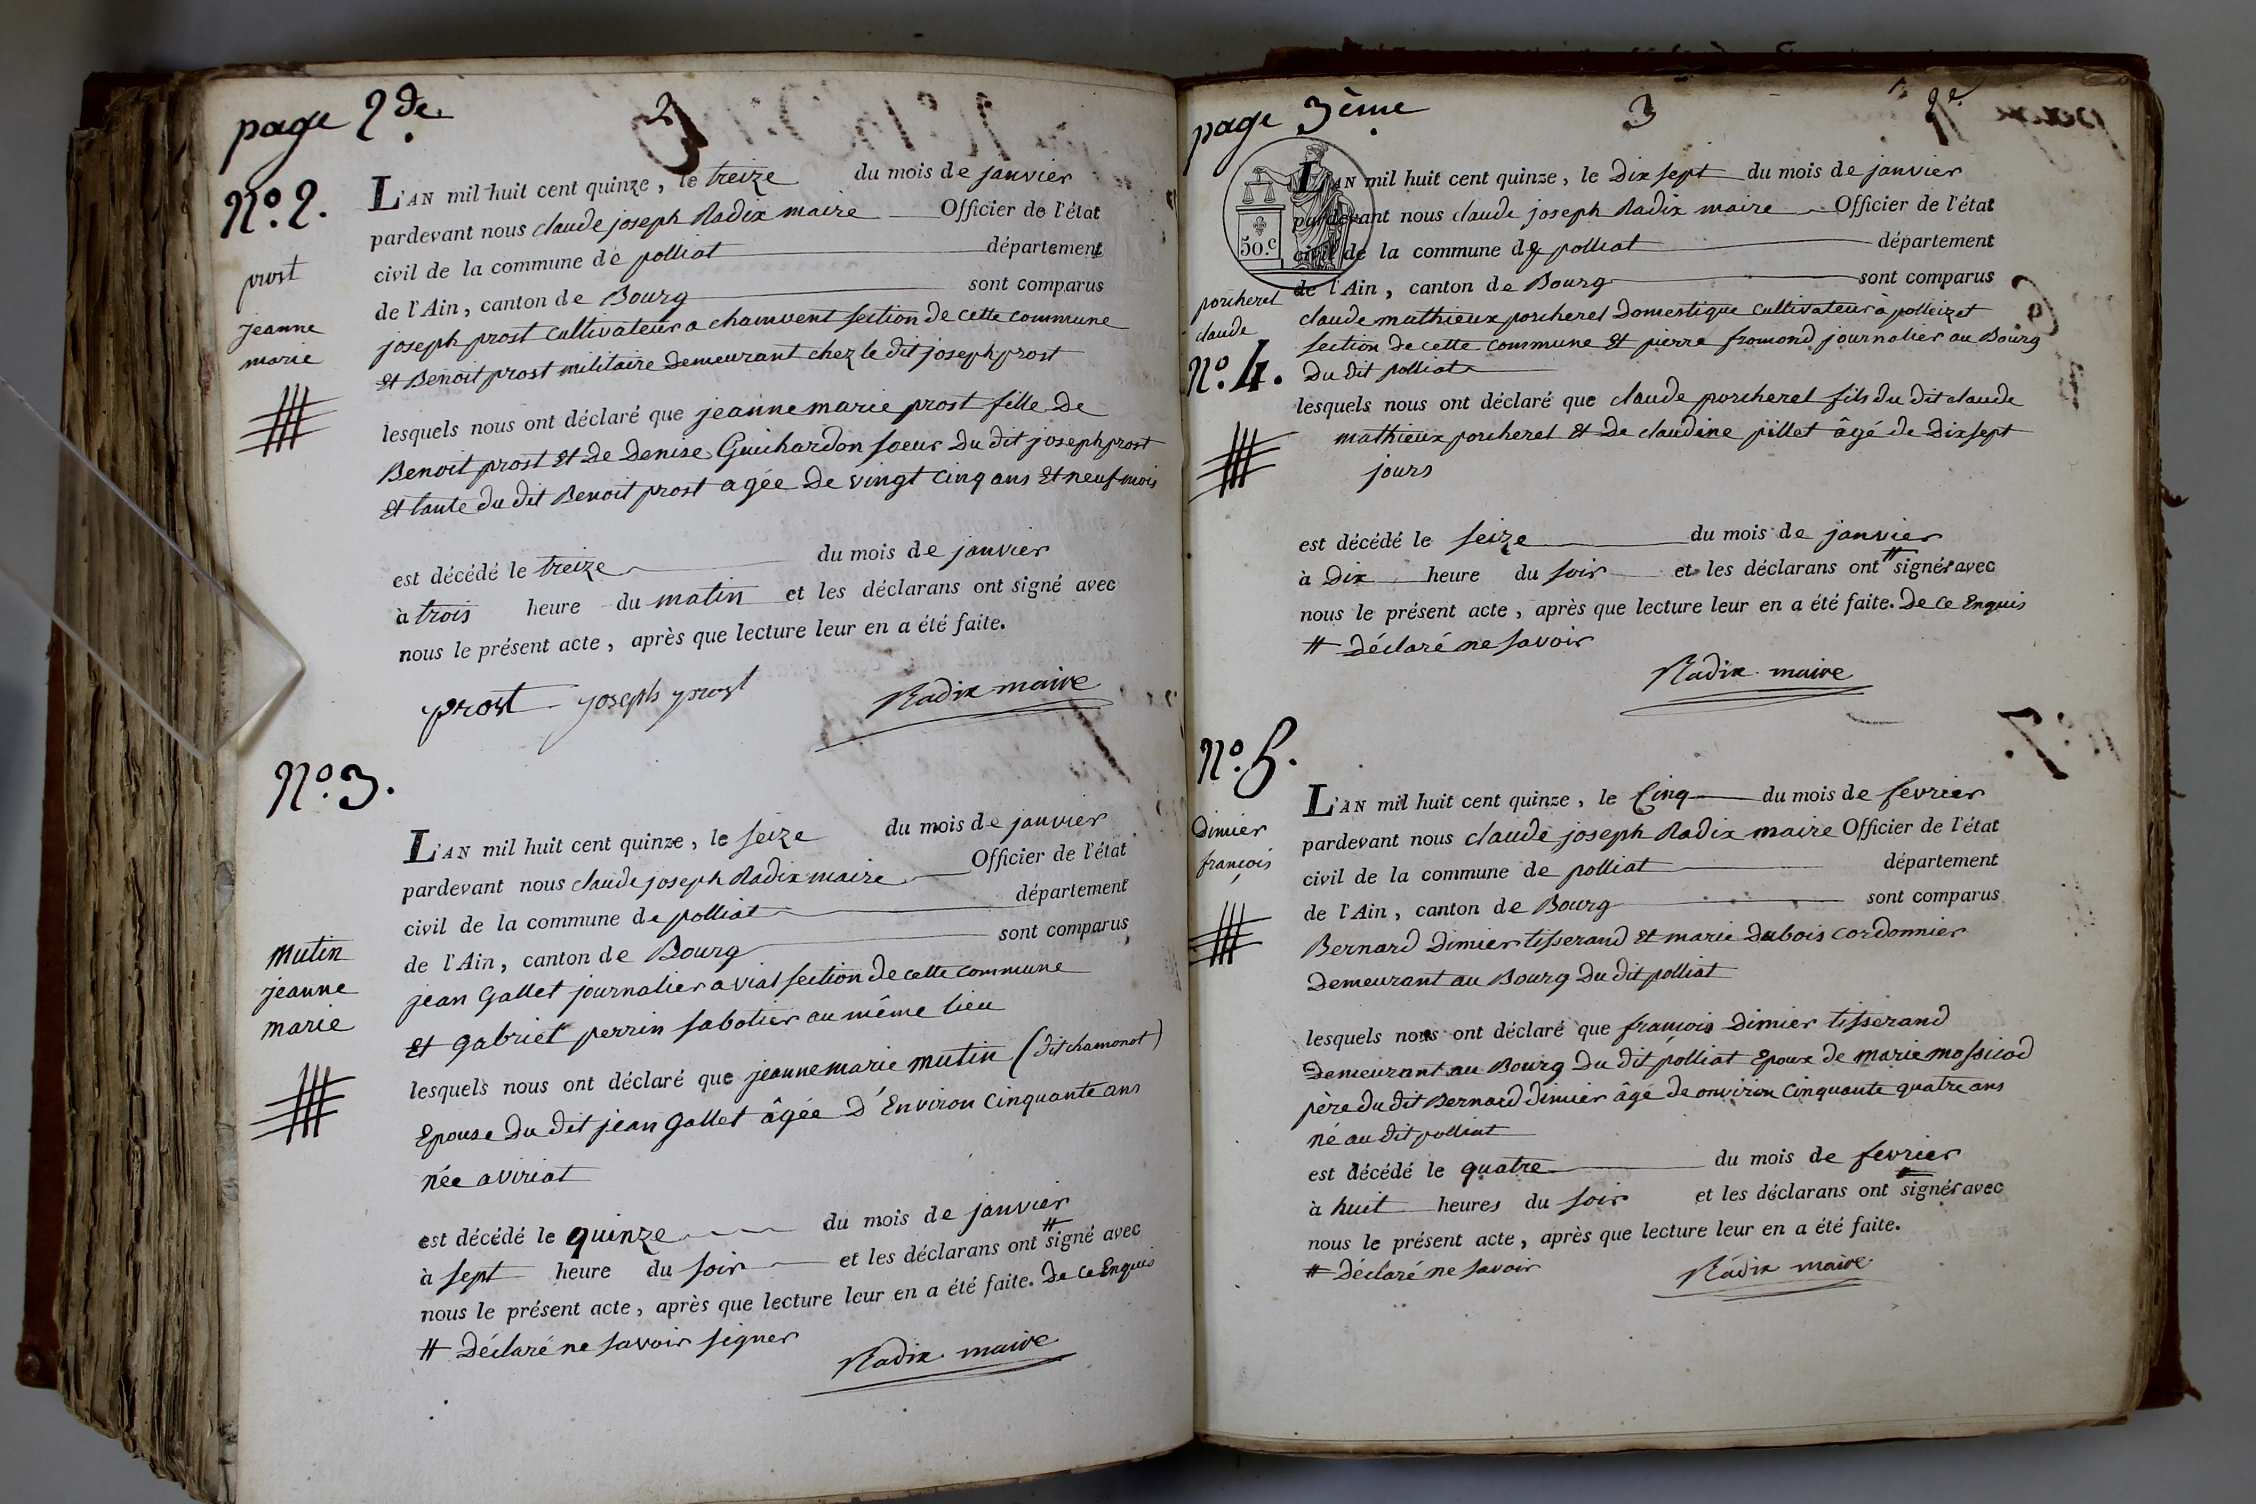 page 2de
2
N.º 2.
prost
jeanne
marie
L'AN mil huit cent quinze, le treize du mois de janvier
pardevant nous claude joseph Radix maire Officier de l'état
civil de la commune de polliat département
de l'Ain, canton de Bourg sont comparus
joseph prost cultivateur a chamvent section de cette commune
Et Benoit prost militaire demeurant chez le dit joseph prost
lesquels nous ont déclaré que jeanne marie prost fille de
Benoit prost Et de denise Guichardon soeur du dit joseph prost
Et tante du dit Benoit prost agée de vingt cinq ans Et neuf mois
est décédé le treize du mois de janvier
à trois heure du matin et les déclarans ont signé avec
nous le présent acte, après que lecture leur en a été faite.
prost joseph prost Radix maire
N.º 3.
mutin
jeanne
marie
L'AN mil huit cent quinze, le seize du mois de janvier
pardevant nous claude joseph Radix maire Officier de l'état
civil de la commune de polliat département
de l'Ain, canton de Bourg sont comparus
jean Gallet journalier a viat section de cette commune
Et gabriel perrin sabotier au même lieu
lesquels nous ont déclaré que jeanne marie mutin (dit chamonot)
Epouse du dit jean Gallet âgée d'Environ cinquante ans
née a viriat
est décédé le quinze du mois de janvier
à sept heure du soir et les déclarans ont # signé avec
nous le présent acte, après que lecture leur en a été faite. De ce Enquis
# Déclaré ne savoir signer
Radix maire
page 3ème
3
50.c
porcherel
claude
N.º 4.
L'AN mil huit cent quinze, le Dix sept du mois de janvier
pardevant nous claude joseph Radix maire Officier de l'état
civil de la commune de polliat département
de l'Ain, canton de Bourg sont comparus
claude mathieux porcherel Domestique cultivateur à polleizet
section de cette commune Et pierre fromond journalier au Bourg
Du dit polliat
lesquels nous ont déclaré que claude porcherel fils du dit claude
mathieux porcherel Et de claudine pillet âgé de Dix sept
jours
est décédé le seize du mois de janvier
à Dix heure du soir et les déclarans ont # signés avec
nous le présent acte, après que lecture leur en a été faite. De ce Enquis
# Déclaré ne savoir
Radix maire
N.º 5.
Dimier
françois
L'AN mil huit cent quinze, le Cinq du mois de fevrier
pardevant nous claude joseph Radix maire Officier de l'état
civil de la commune de polliat département
de l'Ain, canton de Bourg sont comparus
Bernard Dimier tisserand Et marie dubois cordonnier
Demeurant au Bourg du dit polliat
lesquels nous ont déclaré que françois Dimier tisserand
Demeurant au Bourg Du dit polliat Epoux de marie mossicod
père du dit Bernard dimier âgé de onviron cinquante quatre ans
né au dit polliat
est décédé le quatre du mois de fevrier
à huit heures du soir et les déclarans ont # signés avec
nous le présent acte, après que lecture leur en a été faite.
# Déclaré ne savoir
Radix maire